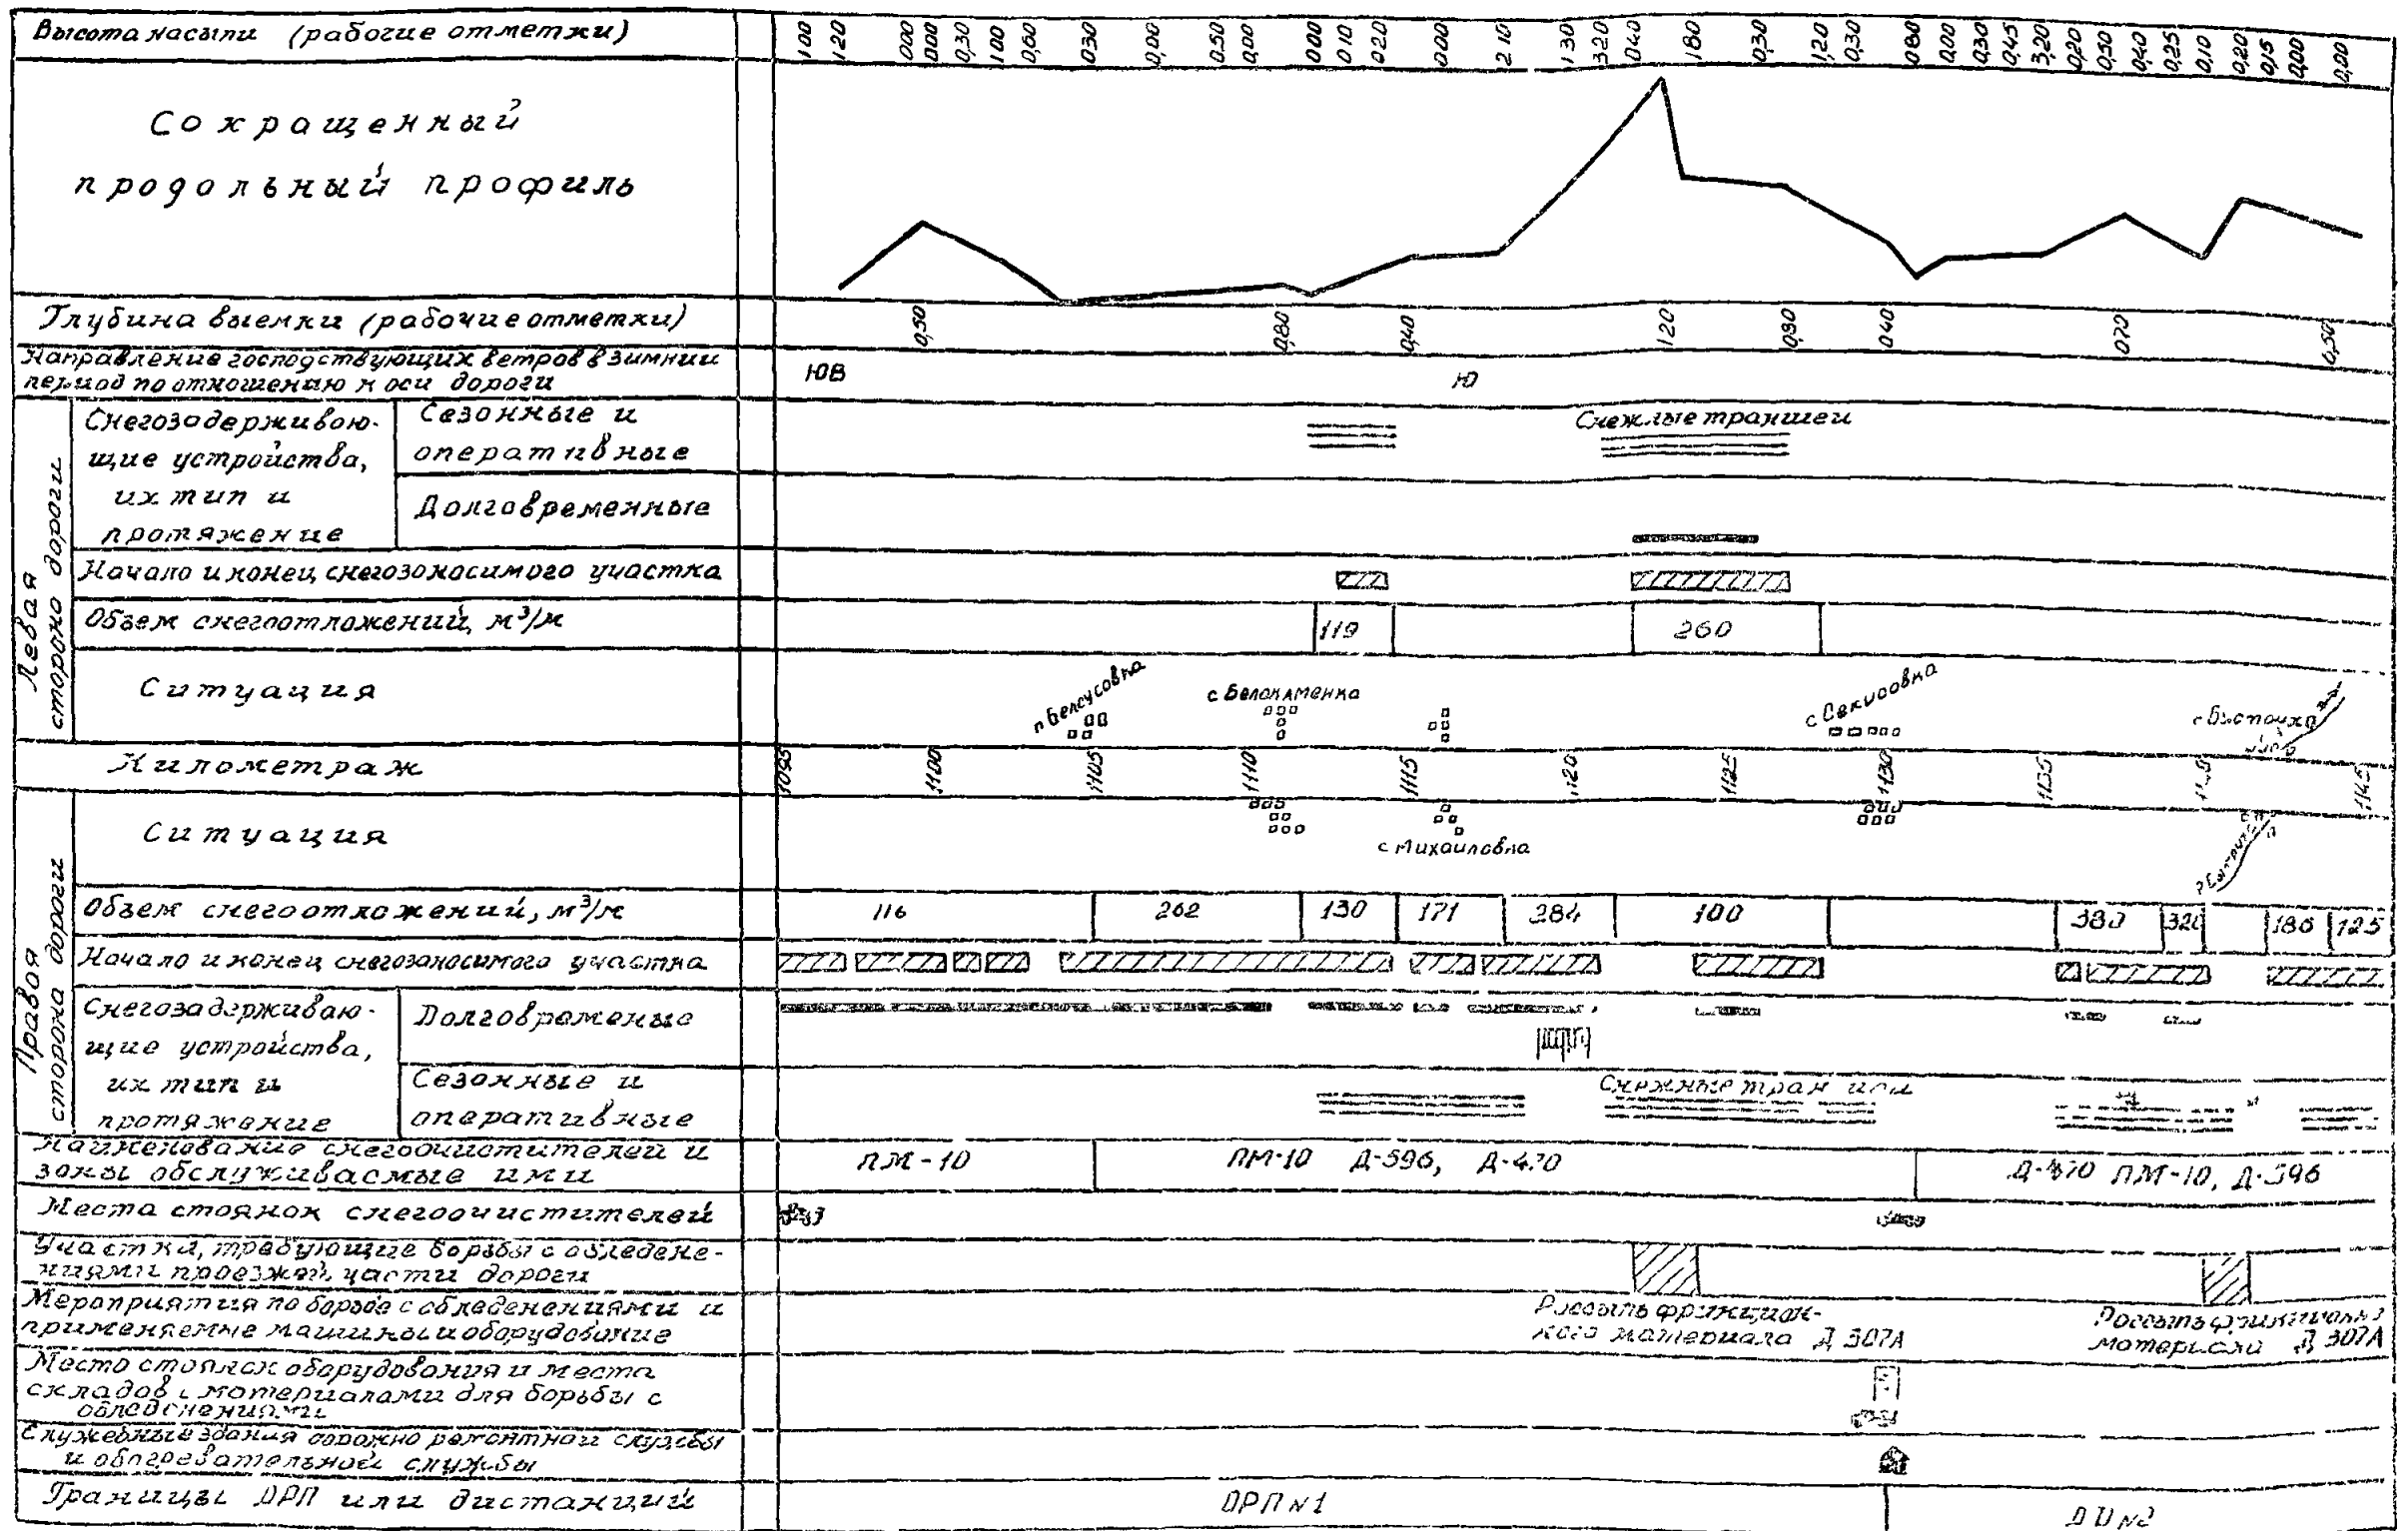 Высота насыпи (рабочие отметки)
1.00 1.20 0.00 0.00 0,30 1.00 0,60 0.30 0,00 0,50 0,00 0.00 0.10 0.20 0.00 2.10 1.30 3.20 0.40 1.80 0,30 1,20 0,30 0.80 0,00 0,30 0,45 3,20 0,20 0,50 0,40 0,25 0,10 0,20 0,15 0,00 0,00
Сокращенный
продольный профиль
Глубина выемки (рабочие отметки)
0,50 0,80 0,40 1,20 0,40 0,70 0,50
Направление господствующих ветров в зимнии
период по отношению к оси дороги
ЮВ Ю
Левая
сторона дороги
Снегозадерживаю-
щие устройства,
их тип и
протяжение
Сезонные и
оперативные
Снежные траншеи
Долговременные
Начало и конец снегозаносимого участка
Объем снегоотложений, м³/м
119 260
Ситуация
п Белоусовка
с Белокаменка
с Секисовка
Километраж
1095 1100 1105 1110 1115 1120 1125 1130 1135 1145
Правая
сторона дороги
Ситуация
с Михаиловка
Объем снегоотложений, м³/м
116 262 130 171 284 100 380 320 186 125
Начало и конец снегозаносимого участка
Снегозадерживаю-
щие устройства,
их тип и
протяжение
Долговременые
Сезонные и
оперативные
Снежные
Наименование снегоочистителей и
зоны обслуживаемые ими
ПМ-10
ПМ-10 Д-596, Д-470
Д-470 ПМ-10, Д-596
Места стоянок снегоочистителей
Участки, требующие борьбы с обледене-
ниями проезжей части дороги
Мероприятия по борьбе с обледенениями и
применяемые машины и оборудование
материала Д 307А
Д 307А
Место стоянок оборудования и места
складов с материалами для борьбы с
обледенениями
Служебные здания дорожно ремонтной службы
и обогревательной службы
Границы ДРП или дистанций
ДРП №1